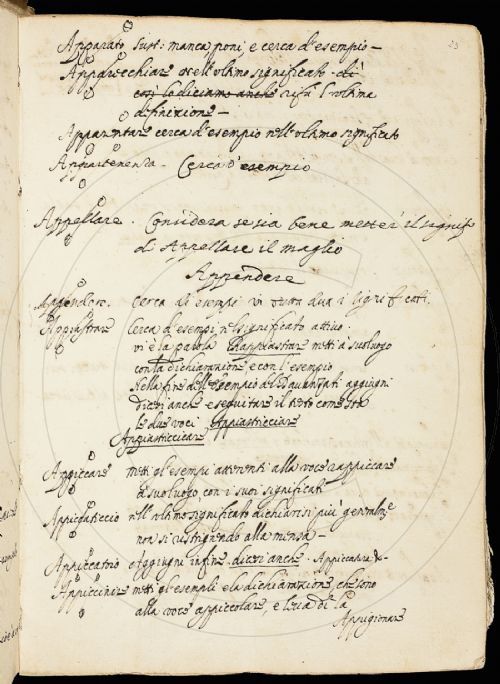 23
Apparato sust: manca, poni, e cerca d'esempio –
Apparecchiare nell'ultimo significato di
così lo diciamo anche rifà l'ultima
difinizione –
Apparentare cerca d'esempio nell'ultimo significato
Appartenenza – Cerca d'esempio
Appellare. Considera se sia bene metter' il signif.
di Appellare il maglio
Appendere
Appendere. cerca di esempi in tutta dua i significati.
Appiastrare cerca d'esempi nel significato attivo.
vi è la parola Rappiastrare metti a suo luogo
con la dichiarazione, e con l'esempio
nella fine dell'esempio del Davanzati aggiugni
dicesi anche e seguitare il testo come sta
le due voci Appiasticciare
Appiastriccicare
Appiccare metti gl'esempi attenenti alla voce rappiccare
a suo luogo con i suoi significati
Appiccaticcio nell'ultimo significato dichiarisi più generalme
non si ristrignendo alla mensa –
Appiccatoio e aggiugni infine dicesi anche.
Appiccinire metti gl'esempli e la dichiarazione che sono
alla voce appiccolare, e levali di là
Appigionare